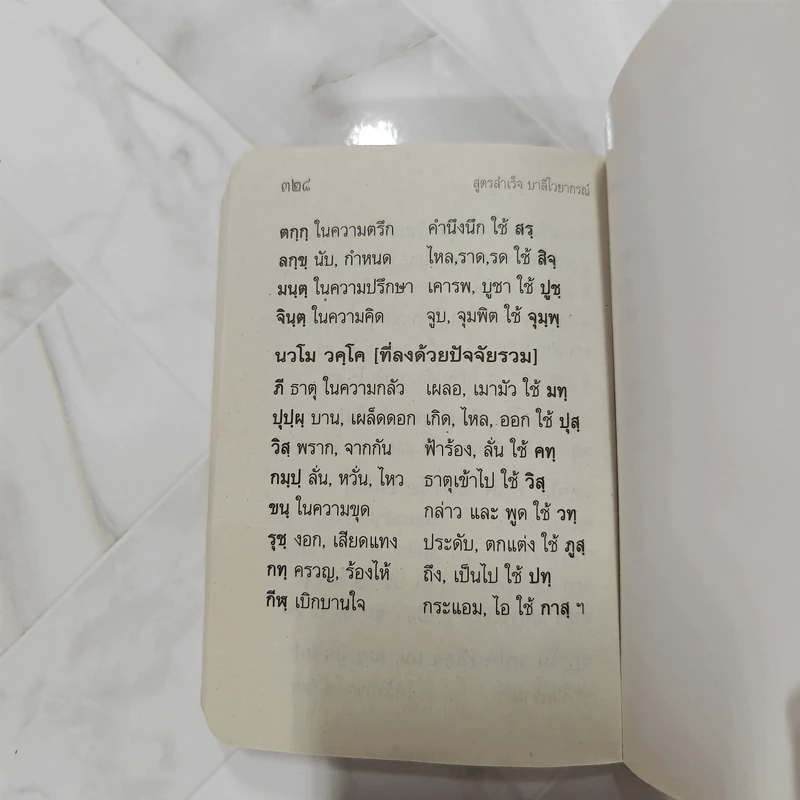 ๓๒๘ สูตรสำเร็จ บาลีไวยากรณ์
ตกฺกฺ ในความตรึก คำนึงนึก ใช้ สรฺ
ลกฺขฺ นับ, กำหนด ไหล,ราด,รด ใช้ สิจฺ
มนฺตฺ ในความปรึกษา เคารพ, บูชา ใช้ ปูชฺ
จินฺตฺ ในความคิด จูบ, จุมพิต ใช้ จุมฺพฺ
นวโม วคฺโค [ที่ลงด้วยปัจจัยรวม]
ภี ธาตุ ในความกลัว เผลอ, เมามัว ใช้ มทฺ
ปุปฺผฺ บาน, เผล็ดดอก เกิด, ไหล, ออก ใช้ ปุสฺ
วิสฺ พราก, จากกัน ฟ้าร้อง, ลั่น ใช้ คทฺ
กมฺปฺ ลั่น, หวั่น, ไหว ธาตุเข้าไป ใช้ วิสฺ
ขนฺ ในความขุด กล่าว และ พูด ใช้ วทฺ
รุชฺ งอก, เสียดแทง ประดับ, ตกแต่ง ใช้ ภูสฺ
กทฺ ครวญ, ร้องไห้ ถึง, เป็นไป ใช้ ปทฺ
กีฬฺ เบิกบานใจ กระแอม, ไอ ใช้ กาสฺ ฯ